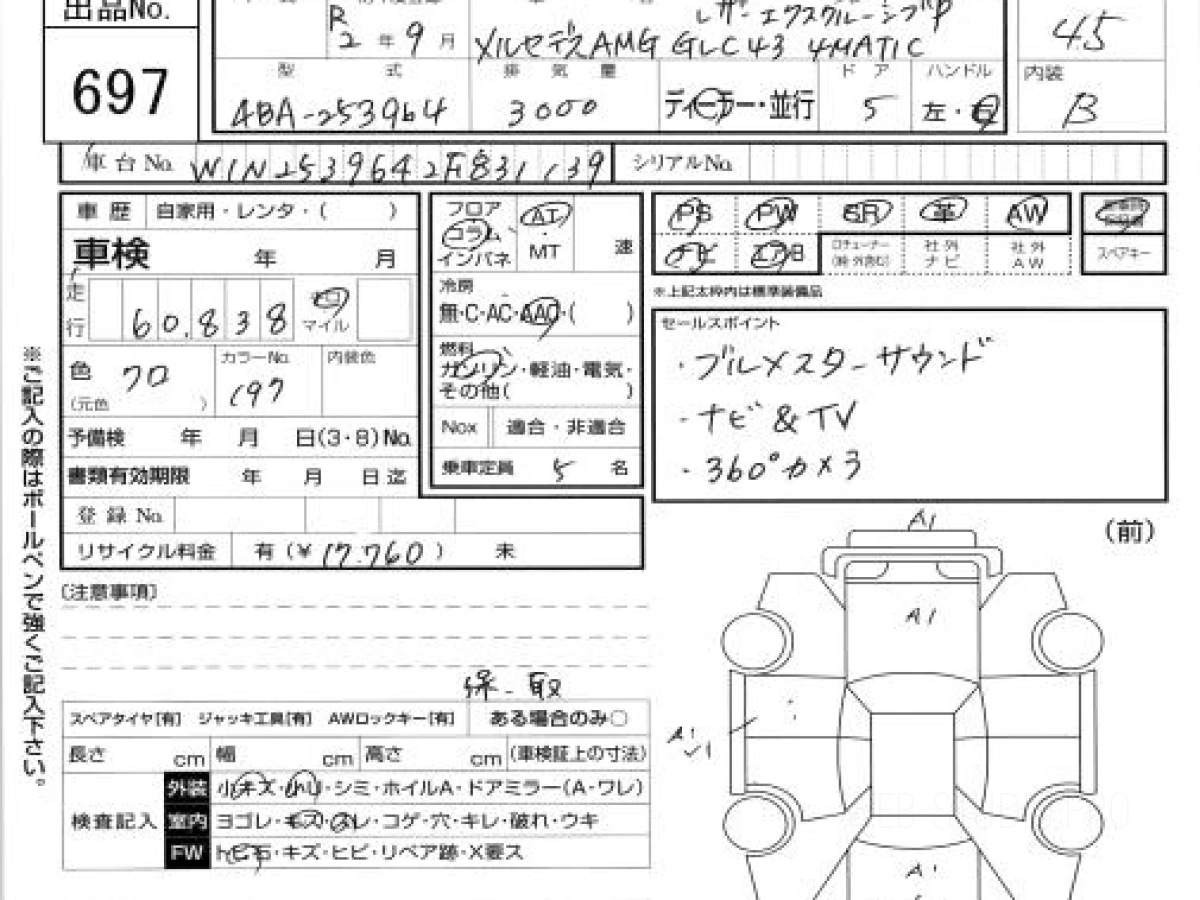 出品No.
697
R 2 年 9 月
レザーエクスクルーシブP
メルセデスAMG GLC43 4MATIC
4.5
型 式 排 気 量 ド ア ハンドル 内装
ABA-253964 3000 ディーラー・並行 5 左・右 B
車台No. W1N2539642F831139 シリアルNo.
車 歴 自家用・レンタ・( )
車検 年 月
走行 60,838 キロ マイル
色 クロ (元色 ) カラーNo. 197 内装色
予備検 年 月 日(3・8)No.
書類有効期限 年 月 日迄
登 録 No.
リサイクル料金 有 (¥ 17,760 ) 未
フロア コラム インパネ AT・MT 速
冷房
無・C・AC・AAC・( )
燃料
ガソリン・軽油・電気・
その他( )
Nox 適合・非適合
乗車定員 5 名
PS PW SR 革 AW
ナビ エアB ロチェーナー (純・外含む) 社外ナビ 社外AW スペアキー
※上記太枠内は標準装備品
セールスポイント
・ブルメスターサウンド
・ナビ&TV
・360°カメラ
※ご記入の際はボールペンで強くご記入下さい。
〔注意事項〕
保-取
スペアタイヤ[有] ジャッキ工具[有] AWロックキー[有] ある場合のみ○
長さ cm 幅 cm 高さ cm (車検証上の寸法)
検査記入
外装 小キズ・小凹・シミ・ホイルA・ドアミラー(A・ワレ)
室内 ヨゴレ・キズ・スレ・コゲ・穴・キレ・破れ・ウキ
FW トビ石・キズ・ヒビ・リペア跡・X要ス
(前)
A1
A1
A1
A1